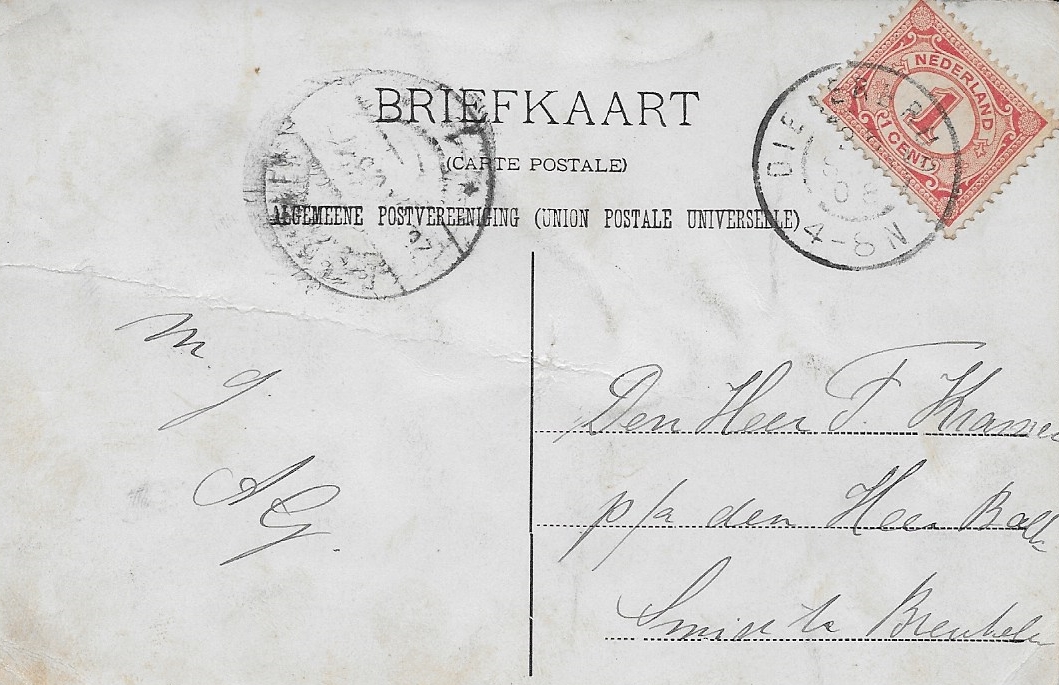 BRIEFKAART
(CARTE POSTALE)
ALGEMEENE POSTVEREENIGING (UNION POSTALE UNIVERSELLE)
NEDERLAND
1
1 CENT
DIE
08
4-8N
m. g
A G.
Den Heer F. Kramer
p/a den Heer
Smid te Breukelen